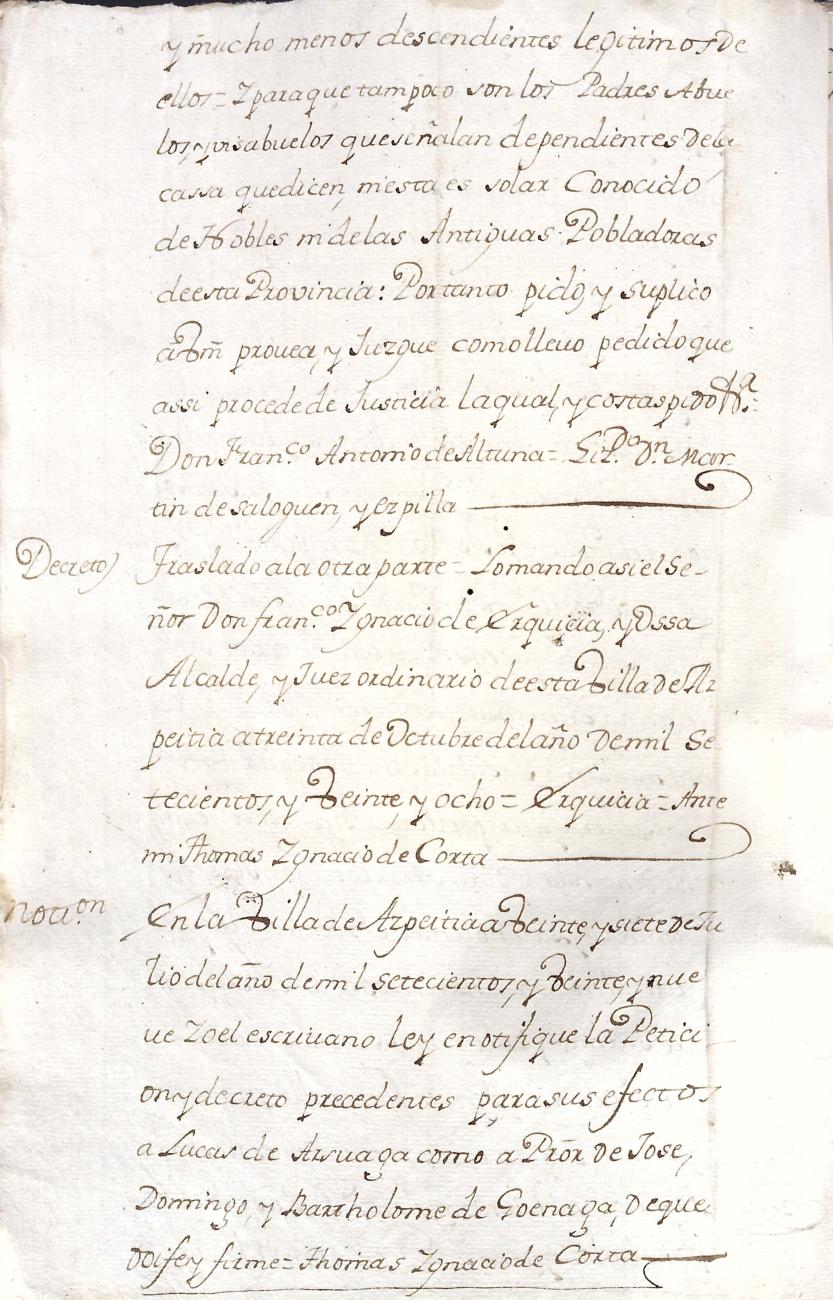 y mucho menos descendientes legitimos De
ellos = Y para que tampoco son los Padres Abue
los, y visabuelos que señalan dependientes De la
cassa que dicen, ni esta es solar Conocido
de Nobles ni de las Antiguas Pobladoras
de esta Provincia: Por tanto pido, y suplico
a Vm̃ provea, y Juzgue como llevo pedido que
assi procede de Justicia la qual, y costas pido
Don Fran.co Antonio de Altuna = Liz.do Dn. Mar-
tin de saloguen, y ezpilla
Decreto) Traslado a la otra parte = Lo mando asi el Se-
ñor Don fran.co Ygnacio de Erquicia, y Ossa
Alcalde, y Juez ordinario de esta Villa de Az
peitia a treinta de Octubre del año De mil Se
tecientos, y Veinte, y ocho = Erquicia = Ante
mi Thomas Ygnacio de Corta
Noti.on En la Villa de Azpeitia a Veinte, y siete de Ju
lio del año de mil setecientos, y Veinte, y nue
ve Yo el escrivano ley e notifique la Petici
on y decreto precedentes para sus efectos
a Lucas de Arsuaga como a Prõr de Jose,
Domingo, y Bartholome de Goenaga, De que
doife y firme = Thomas Ygnacio de Corta